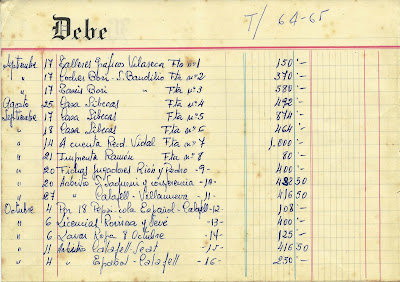 Debe
T/ 64-65
Septiembre 17 Talleres Graficos Vilaseca Fta nº 1 150'-
" 17 Coches Bori - S. Baudilio Fta nº 2 370'-
" 17 Taxis Bori " Fta nº 3 580'-
Agosto 25 Casa Sibecas Fta nº 4 492'-
Septiembre 17 Casa Sibecas Fta nº 5 874'-
" 18 Casa Sibecas Fta nº 6 464'-
" 14 A cuenta Red. Vidal Fta nº 7 1.000'-
" 21 Imprenta Ramón Fta nº 8 80'-
" 20 Fichas Jugadores Rión y Pedro -9- 400'-
" 20 Arbitro S. y conserjeria -10- 50
" 27 " Calafell - Villanueva -11- 416 50
Octubre 4 Por 18 Pepsi-cola Español - Calafell -12- 108'-
" 6 Licencias y -13- 400'-
" 6 Lavar Ropa 8 Octubre -14- 125'-
" 11 Arbitro Calafell - Seat -15- 416 50
" 4 " Español - Calafell -16- 250'-